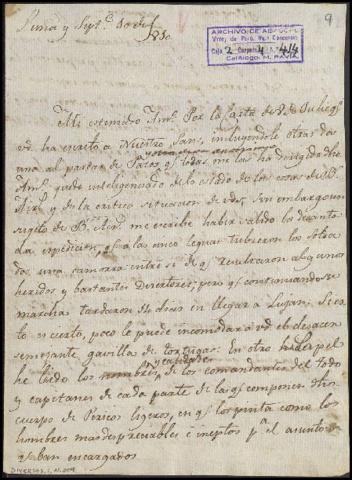 9
Lima y Sept.e 10 de 1810.
ARCHIVO DE ABASCAL
Virrey de Perú, Marq. Concordia
Caja 2 Carpeta 4 Nº 414
Catálogo: M.
Mi estimado Am.o Por la Carta de 28 de Julio q.e
vd. ha escrito a Nuestro Sanz, incluyendole otras dos
una al pastor de q.e todas me las ha dirigido dho
Am.o quedo inteligenciado del estado de las cosas de B.s
Air.s y de la critica situacion de vds. Sin embargo un
sugeto de B.s Air.s me escribe haber salido la decanta-
da expedicion, q.e a las cinco leguas tubieron los solda-
dos una camorra entre si de q.e resultaron algunos
heridos y bastantes Desertores; pero q.e continuando su
marcha tardaron 14 dias en llegar a Lujan. Si es-
to es cierto, poco le puede incomodar a vd. el deshacer
semejante gavilla de tortugas. En otro papel
he leido los nombres, y calidades de los comandantes del todo
y capitanes de cada parte de la q.e componen dho
cuerpo de Pericos ligeros, en q.e los pinta como los
hombres mas despreciables è ineptos p.a el asunto
q.e ban encargados
DIVERSOS, 2,